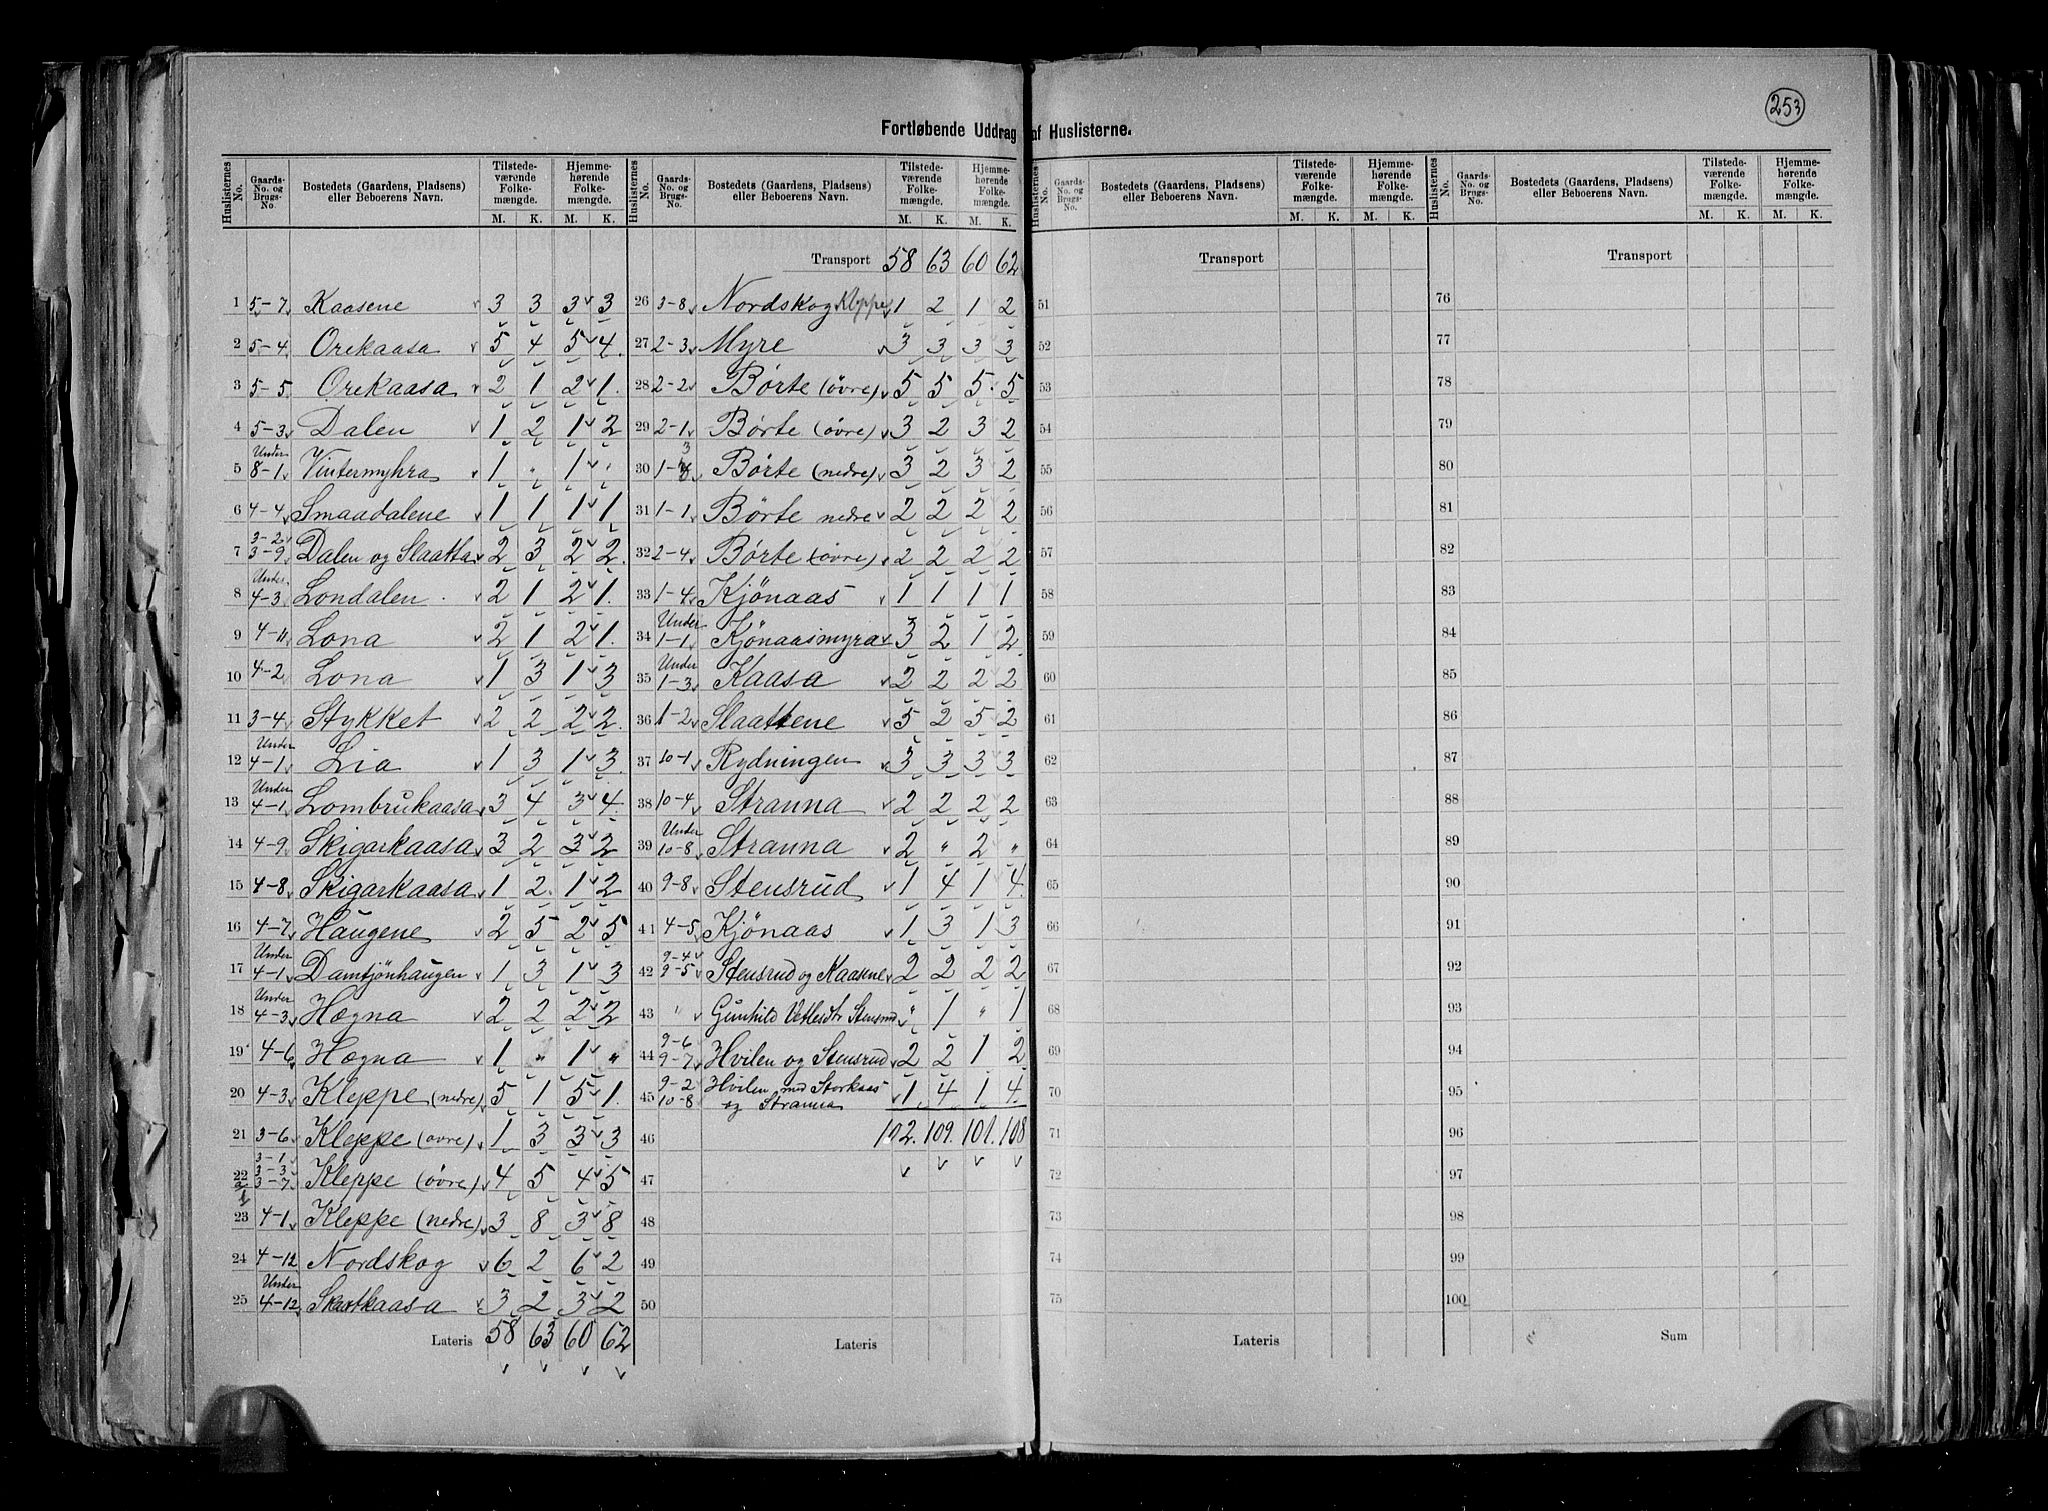 253
Fortløbende Uddrag af Huslisterne.
Huslisternes No. Gaards-No. og Brugs-No. Bostedets (Gaardens, Pladsens) eller Beboerens Navn. Tilstedeværende Folkemængde. M. K. Hjemmehørende Folkemængde. M. K.
1 5-7 Kaasene 3 3 3 3
2 5-4 Orekaasa 5 4 5 4
3 5-5 Orekaasa 2 1 2 1
4 5-3 Dalen 1 2 1 2
5 Under 8-1 Vintermyhra 1 " 1 "
6 4-4 Smaadalene 1 1 1 1
7 3-2 3-9 Dalen og Slaatta 2 3 2 2
8 Under 4-3 Londalen 2 1 2 1
9 4-11 Lona 2 1 2 1
10 4-2 Lona 1 3 1 3
11 3-4 Stykket 2 2 2 2
12 Under 4-1 Lia 1 3 1 3
13 Under 4-1 Lombrukaasa 3 4 3 4
14 4-9 Skigarkaasa 3 2 3 2
15 4-8 Skigarkaasa 1 2 1 2
16 4-7 Haugene 2 5 2 5
17 Under 4-1 Damtjönhaugen 1 3 1 3
18 Under 4-3 Hægna 2 2 2 2
19 4-6 Hægna 1 " 1 "
20 4-3 Kleppe (nedre) 5 1 5 1
21 3-6 Kleppe (øvre) 1 3 3 3
22 3-1 3-3 3-7 Kleppe (øvre) 4 5 4 5
23 4-1 Kleppe (nedre) 3 8 3 8
24 4-12 Nordskog 6 2 6 2
25 Under 4-12 Skartkaasa 3 2 3 2
Lateris 58 63 60 62
Huslisternes No. Gaards-No. og Brugs-No. Bostedets (Gaardens, Pladsens) eller Beboerens Navn. Tilstedeværende Folkemængde. M. K. Hjemmehørende Folkemængde. M. K.
Transport 58 63 60 62
26 3-8 Nordskog Kleppe 1 2 1 2
27 2-3 Myre 3 3 3 3
28 2-2 Børte (övre) 5 5 5 5
29 2-1 Børte (övre) 3 2 3 2
30 1-3 Børte (nedre) 3 2 3 2
31 1-1 Børte nedre 2 2 2 2
32 2-4 Børte (övre) 2 2 2 2
33 1-4 Kjönaas 1 1 1 1
34 Under 1-1 Kjönaasmyra 3 2 1 2
35 Under 1-3 Kaasa 2 2 2 2
36 1-2 Slaattene 5 2 5 2
37 10-1 Rydningen 3 3 3 3
38 10-4 Stranna 2 2 2 2
39 Under 10-8 Stranna 2 " 2 "
40 9-8 Stensrud 1 4 1 4
41 4-5 Kjönaas 1 3 1 3
42 9-4 9-5 Stensrud og Kaasene 2 2 2 2
43 " Gunhild Vetlesdtr Stensrud " 1 " 1
44 9-6 9-7 Hvilen og Stensrud 2 2 1 2
45 9-2 10-8 Hvilen med Storkaas og Stranna 1 4 1 4
46 102. 109. 101. 108
47
48
49
50
Lateris
Huslisternes No. Gaards-No. og Brugs-No. Bostedets (Gaardens, Pladsens) eller Beboerens Navn. Tilstedeværende Folkemængde. M. K. Hjemmehørende Folkemængde. M. K.
Transport
51
52
53
54
55
56
57
58
59
60
61
62
63
64
65
66
67
68
69
70
71
72
73
74
75
Lateris
Huslisternes No. Gaards-No. og Brugs-No. Bostedets (Gaardens, Pladsens) eller Beboerens Navn. Tilstedeværende Folkemængde. M. K. Hjemmehørende Folkemængde. M. K.
Transport
76
77
78
79
80
81
82
83
84
85
86
87
88
89
90
91
92
93
94
95
96
97
98
99
100
Sum